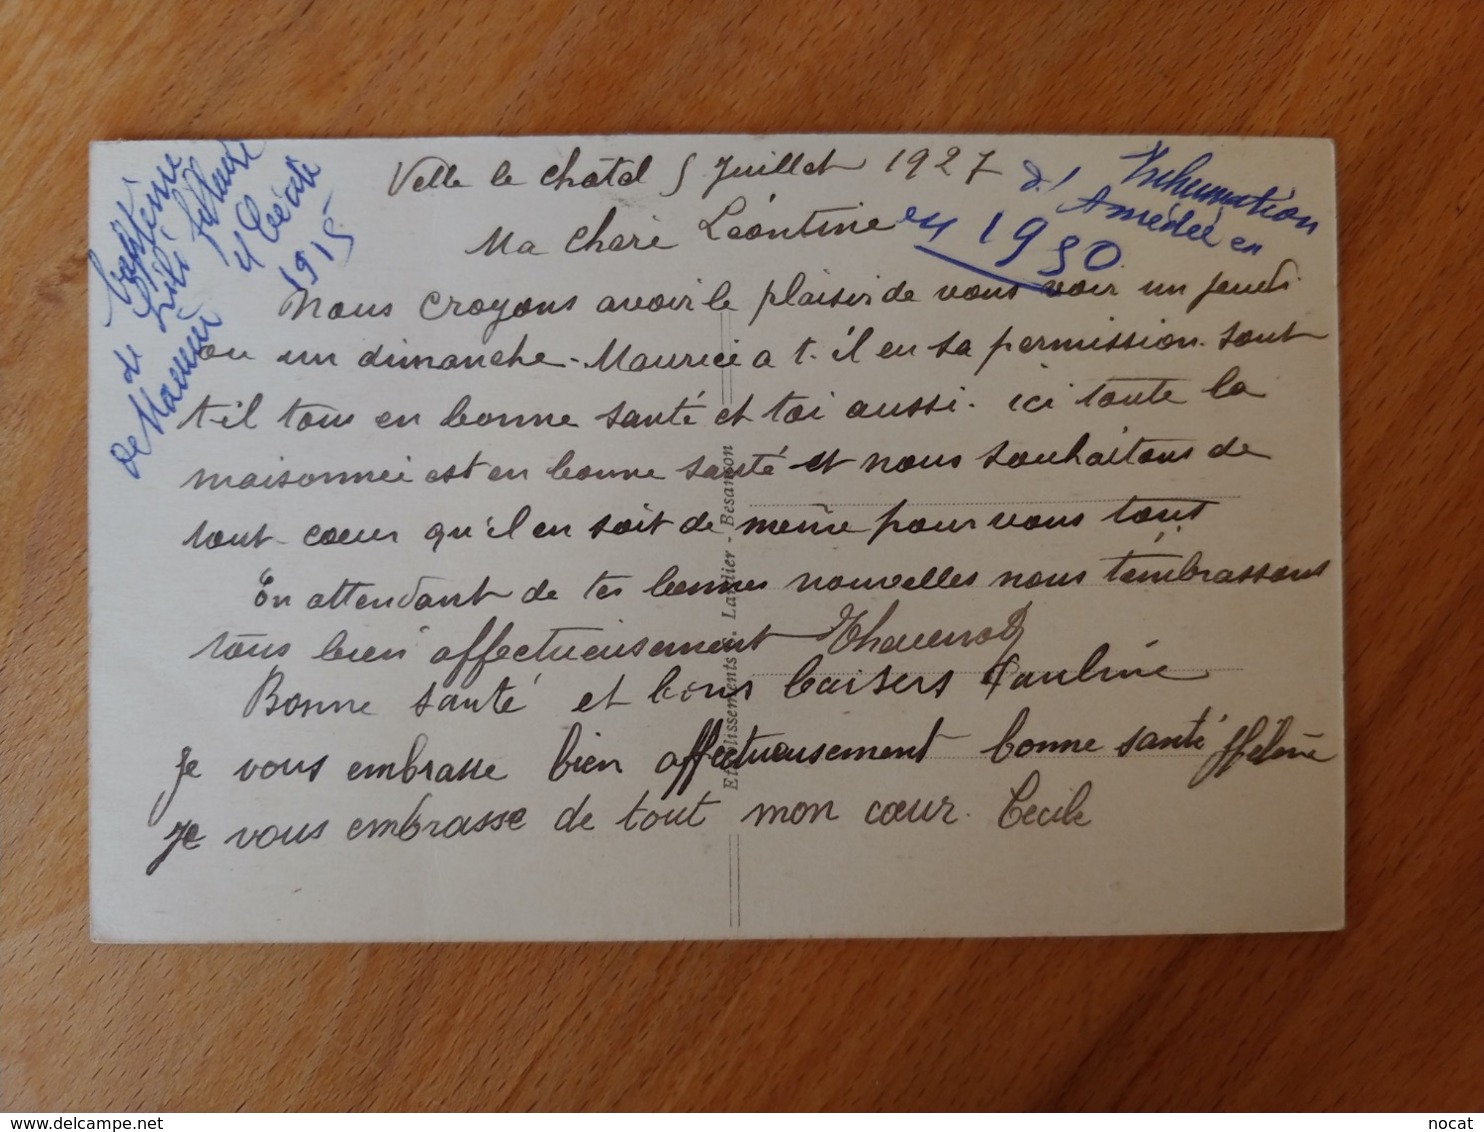 Velle le Chatel 5 Juillet 1927
Ma Chere Léontine
Nous croyons avoir le plaisir de vous voir un jeudi
ou un dimanche - Maurice a t-il eu sa permission. Sont
t-il tous en bonne santé et toi aussi. ici toute la
maisonnée est en bonne santé et nous souhaitons de
tout cœur qu'il en soit de même pour vous tous
En attendant de tes bonnes nouvelles nous t'embrassons
tous bien affectueusement Thevenot
Bonne santé et bons baisers Pauline
Je vous embrasse bien affectueusement bonne santé Hélène
Je vous embrasse de tout mon cœur. Cecile
Inhumation
d'Amédée en
en 1930
Baptême
de Lili
de Mamie
et Cécile
1915
Etablissements C. Lardier - Besançon
delcampe.net
nocat